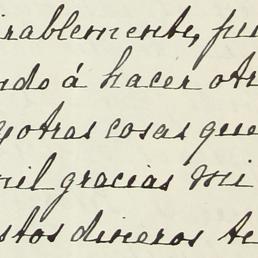 rablemente, pu
ndo á hacer otr
y otras cosas que
mil gracias mi
stos dineros te